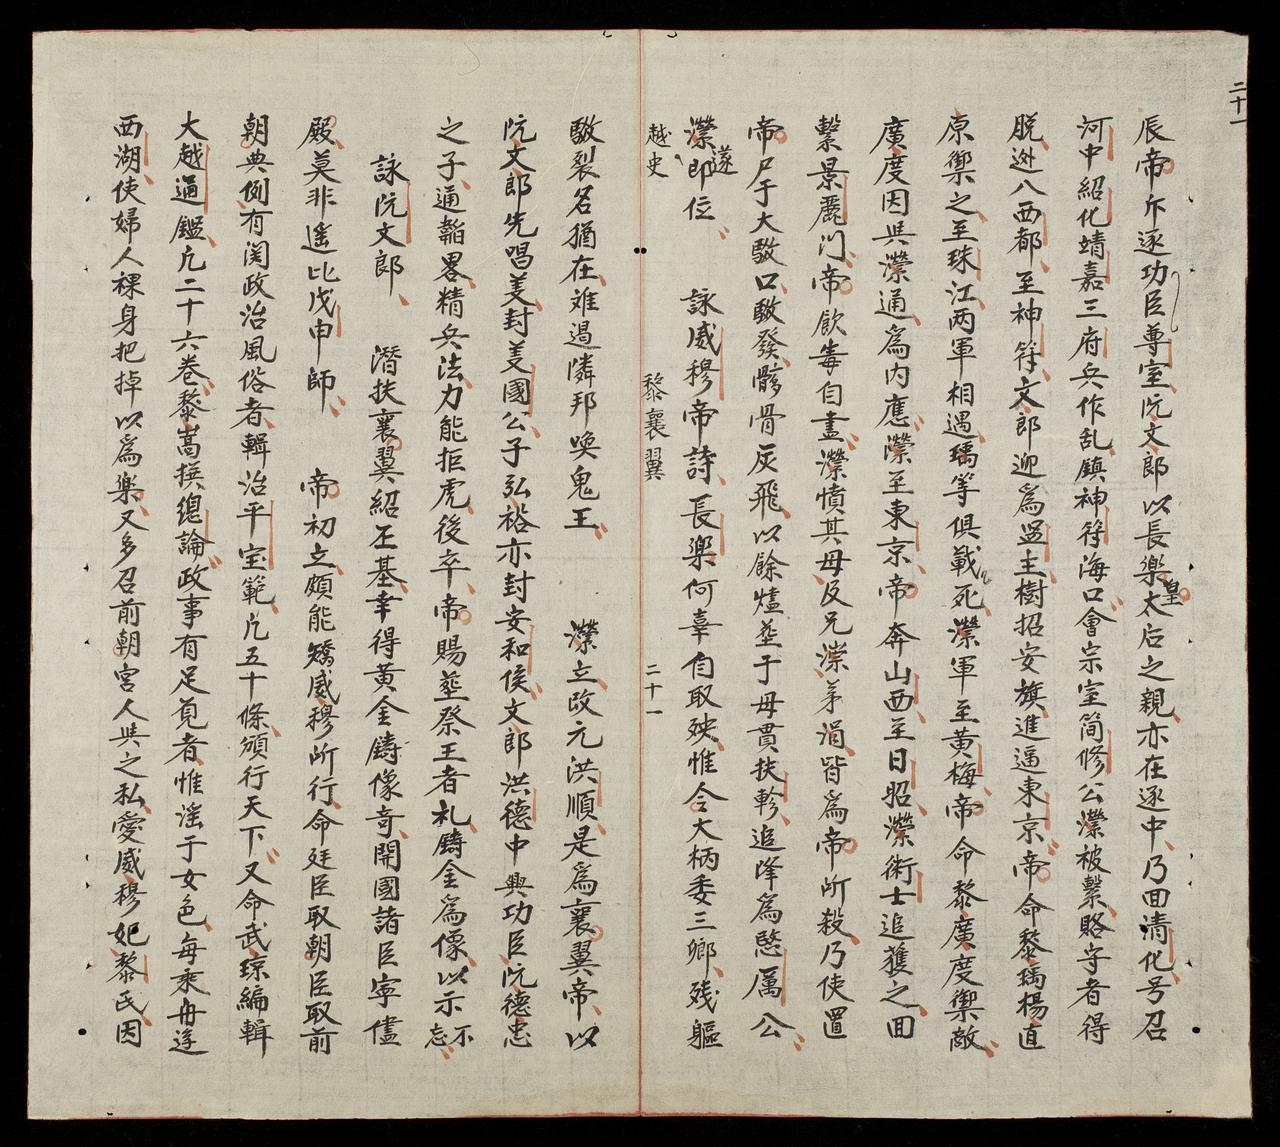 二十一
辰帝斥逐功臣尊室阮文郎以長樂皇太后之親亦在逐中乃回清化号召
河中紹化靖嘉三府兵作乱鎮神符海口會宗室简修公瀠被繫賂守者得
脱迯入西都至神符文郎迎為盟主樹招安旗進逼東京帝命黎瑀楊直
原禦之至珠江两軍相遇瑀等俱戰死瀠軍至黄梅帝命黎廣度禦敵
廣度因与瀠通為内應瀠至東京帝奔山西至日昭瀠術士追獲之回
繫景麗门帝飲毒自盡瀠憤其母及兄溁弟涓皆為帝所殺乃使置
帝尸于大砲口砲發骸骨灰飛以餘燼塟于母貫扶軫追降為愍厲公
瀠遂即位 詠威穆帝詩 長樂何辜自取殃惟令大柄委三鄉残軀
越史 黎襄翼 二十一
砲裂名猶在难過隣邦喚鬼王 瀠立改元洪順是為襄翼帝以
阮文郎先唱美封美國公子弘裕亦封安和侯文郎洪德中興功臣阮德忠
之子通韜畧精兵法力能拒虎後卒帝賜塟祭王者礼鑄金為像以示不忘
詠阮文郎 潛扶襄翼紹丕基幸得黄金鑄像奇開國諸臣寧儘
殿莫非遙比戊申師 帝初立頗能矯威穆所行命廷臣取朝臣取前
朝典例有関政治風俗者輯治平宝範凢五十條頒行天下又命武瓊編輯
大越通鑑凢二十六卷黎嵩撰總論政事有足覓者惟滛于女色每乘舟逰
西湖使婦人裸身把掉以為樂又多召前朝宫人與之私愛威穆妃黎氏因